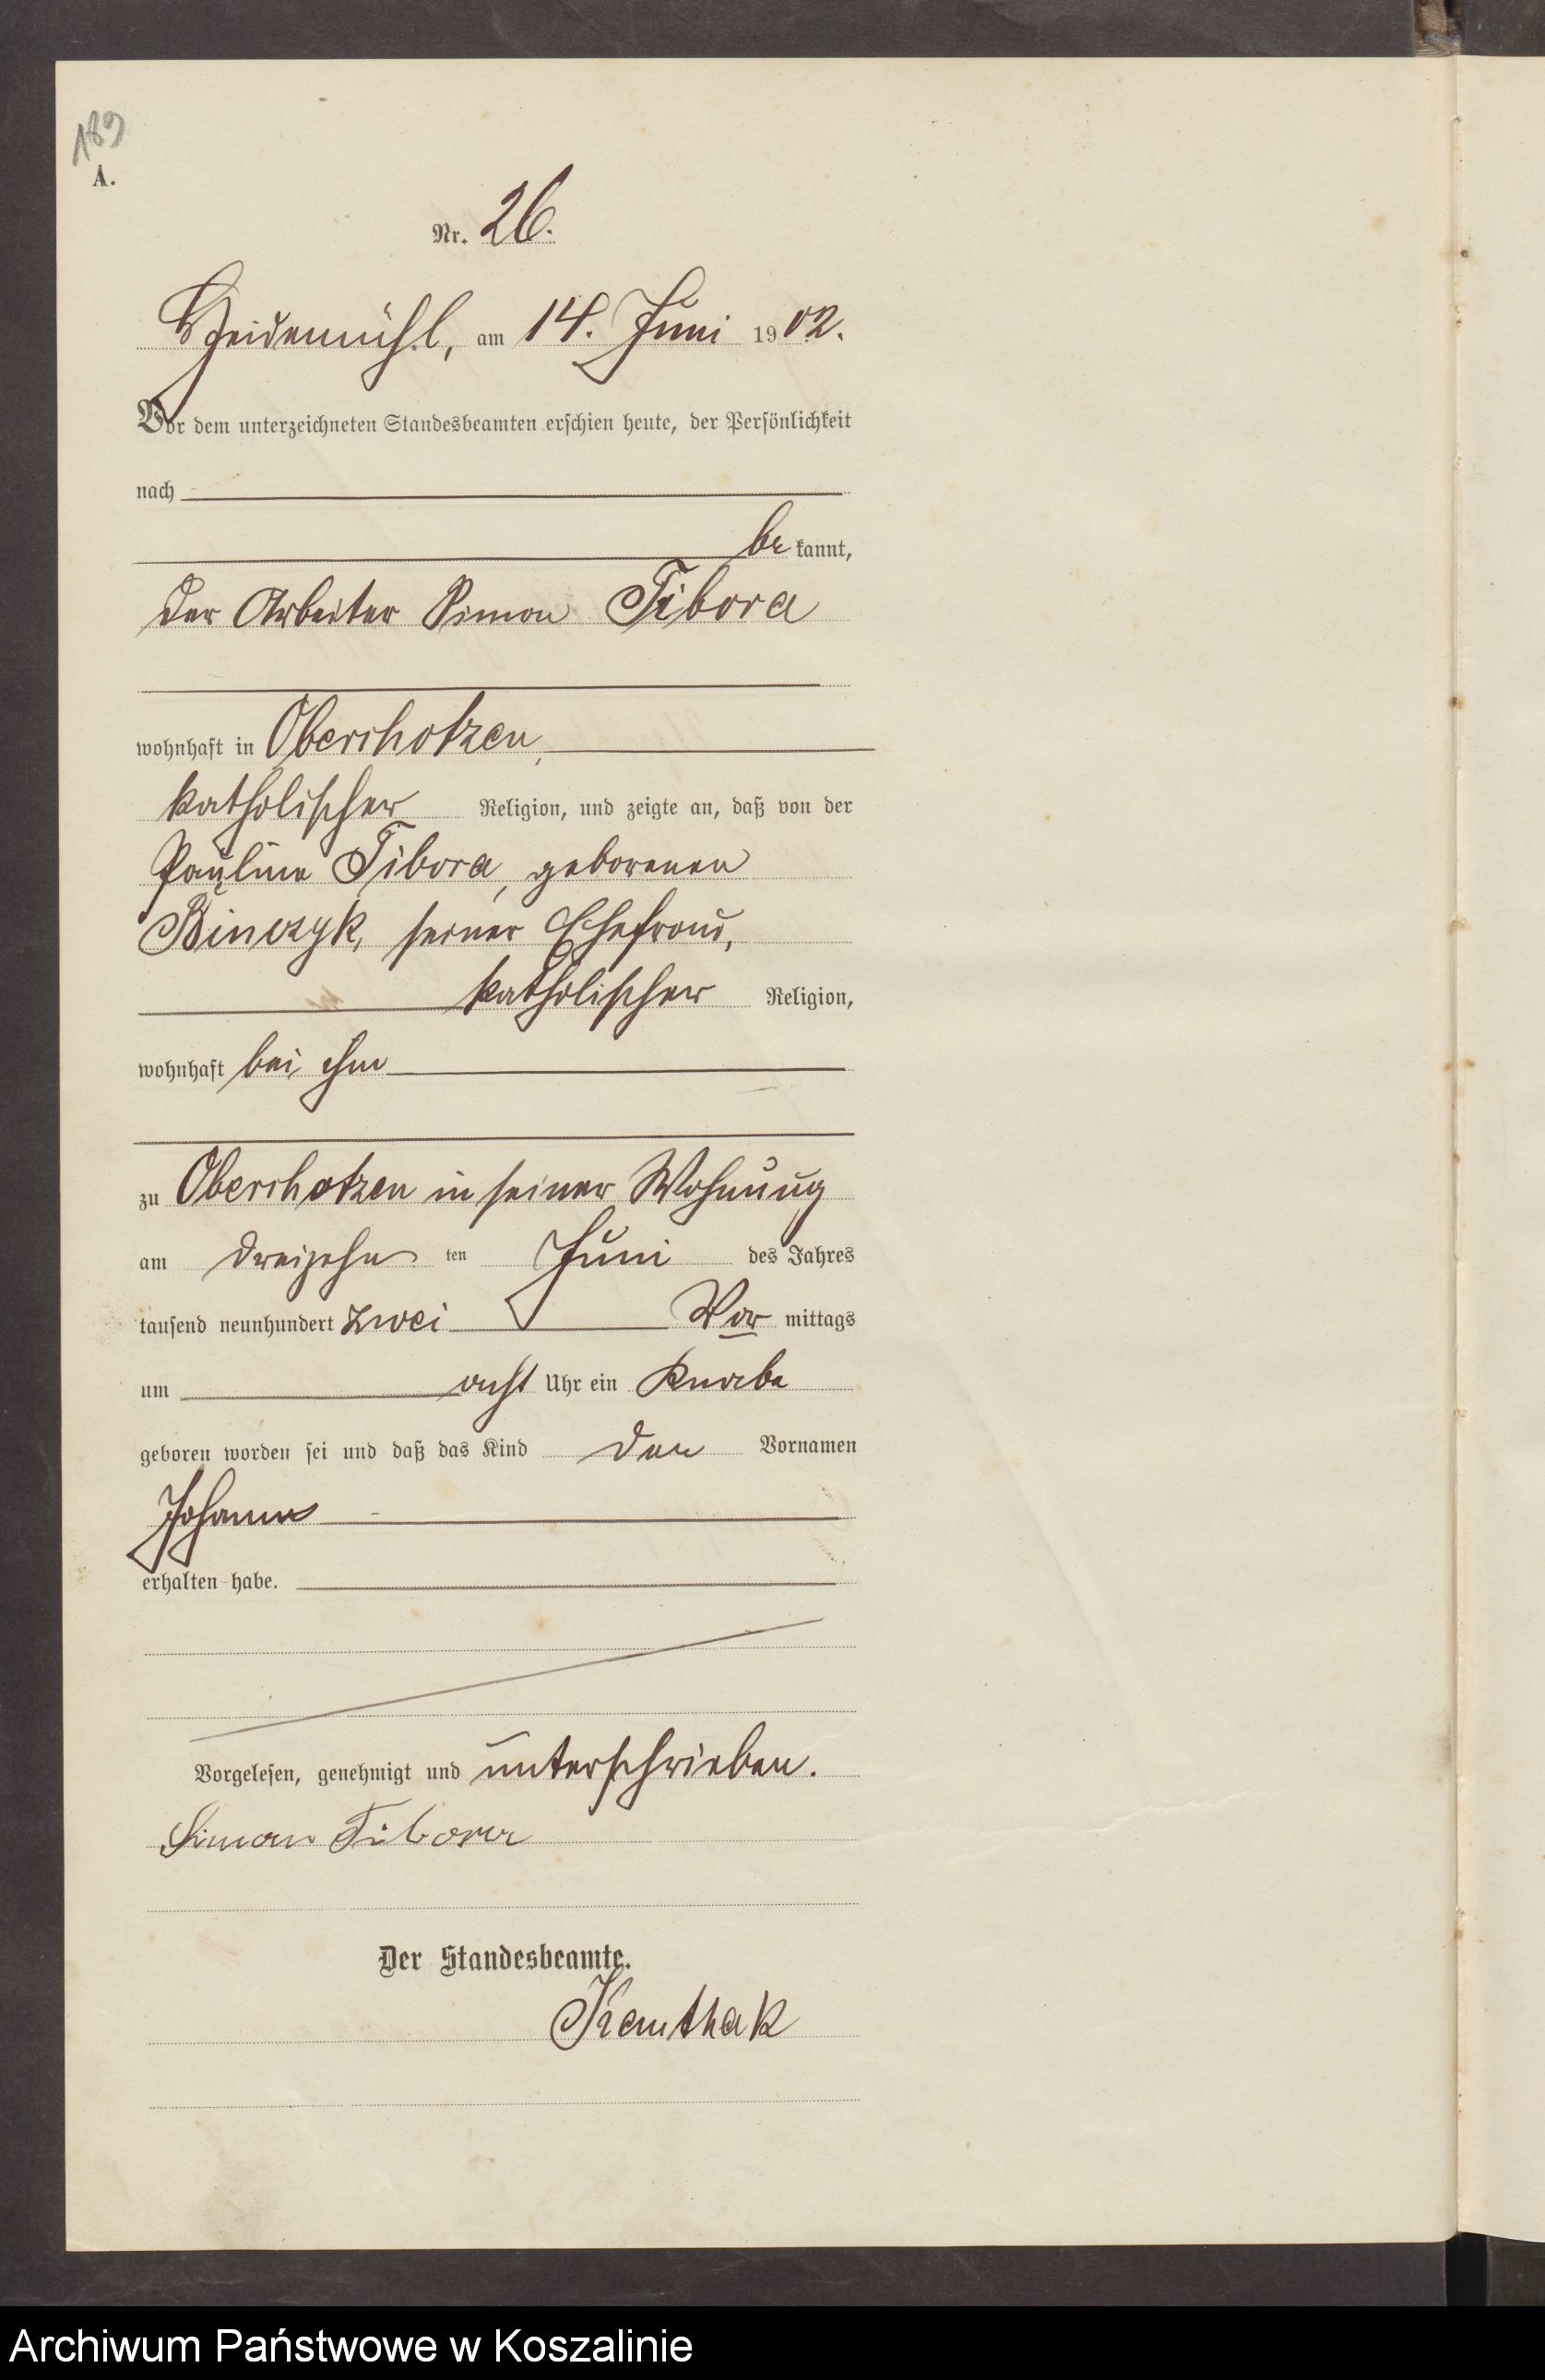 189
A.
Nr. 26.
Heidemühl, am 14. Juni 1902.
Vor dem unterzeichneten Standesbeamten erschien heute, der Persönlichkeit
nach
be kannt,
der Arbeiter Simon Tibora
wohnhaft in Oberchotzen,
katholischer Religion, und zeigte an, daß von der
Pauline Tibora, geborenen
Binczyk, seiner Ehefrau,
katholischer Religion,
wohnhaft bei ihm
zu Oberchotzen in seiner Wohnung
am dreizehn ten Juni des Jahres
tausend neunhundert zwei Vor mittags
um acht Uhr ein Knabe
geboren worden sei und daß das Kind den Vornamen
Johann
erhalten habe.
Vorgelesen, genehmigt und unterschrieben.
Simon Tibora
Der Standesbeamte.
Archiwum Państwowe w Koszalinie